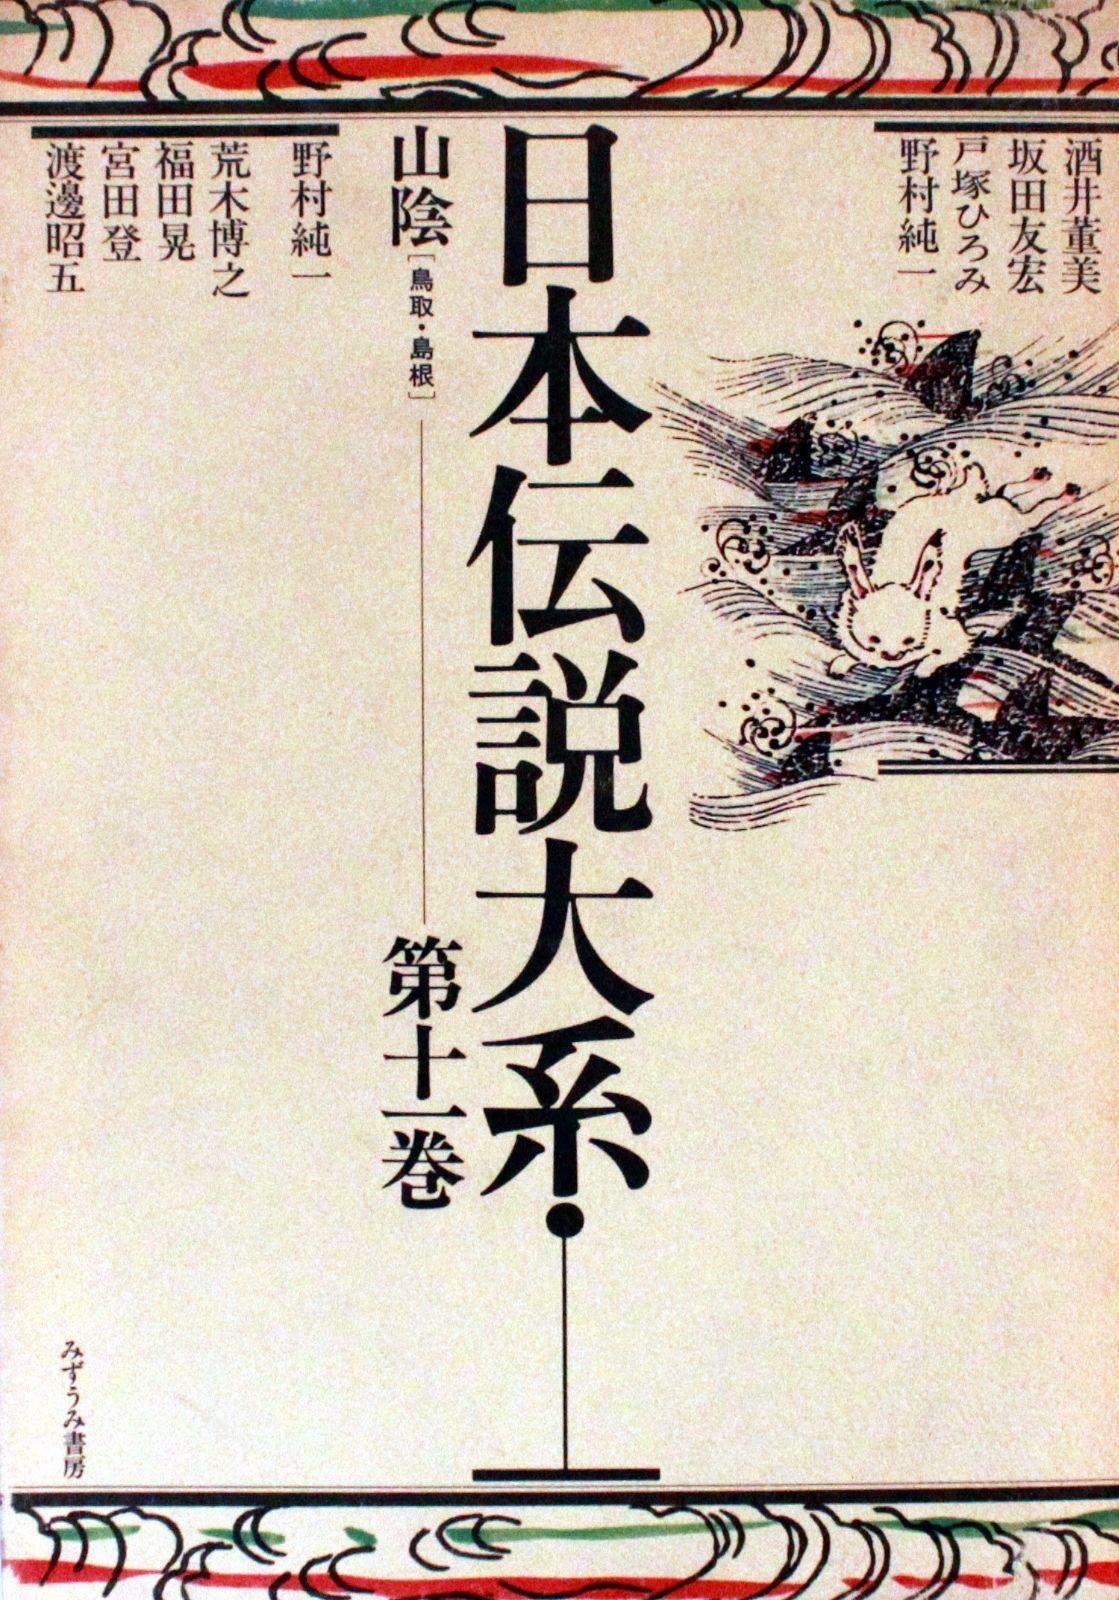 酒井董美
坂田友宏
戸塚ひろみ
野村純一
日本伝説大系・
山陰[鳥取・島根]
第十一巻
野村純一
荒木博之
福田晃
宮田登
渡邊昭五
みずうみ書房